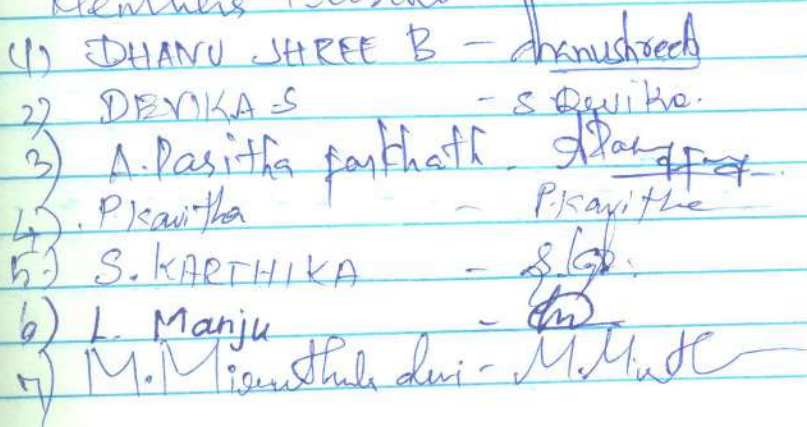 Members Present
(1) DHANU SHREE B - dhanushreeb
2) DEVIKA S - S Devika.
3) A. Pasitha
4). P. Kavitha - P. Kavitha
5.) S. KARTHIKA -
6) L. Manju -
7) M. devi -